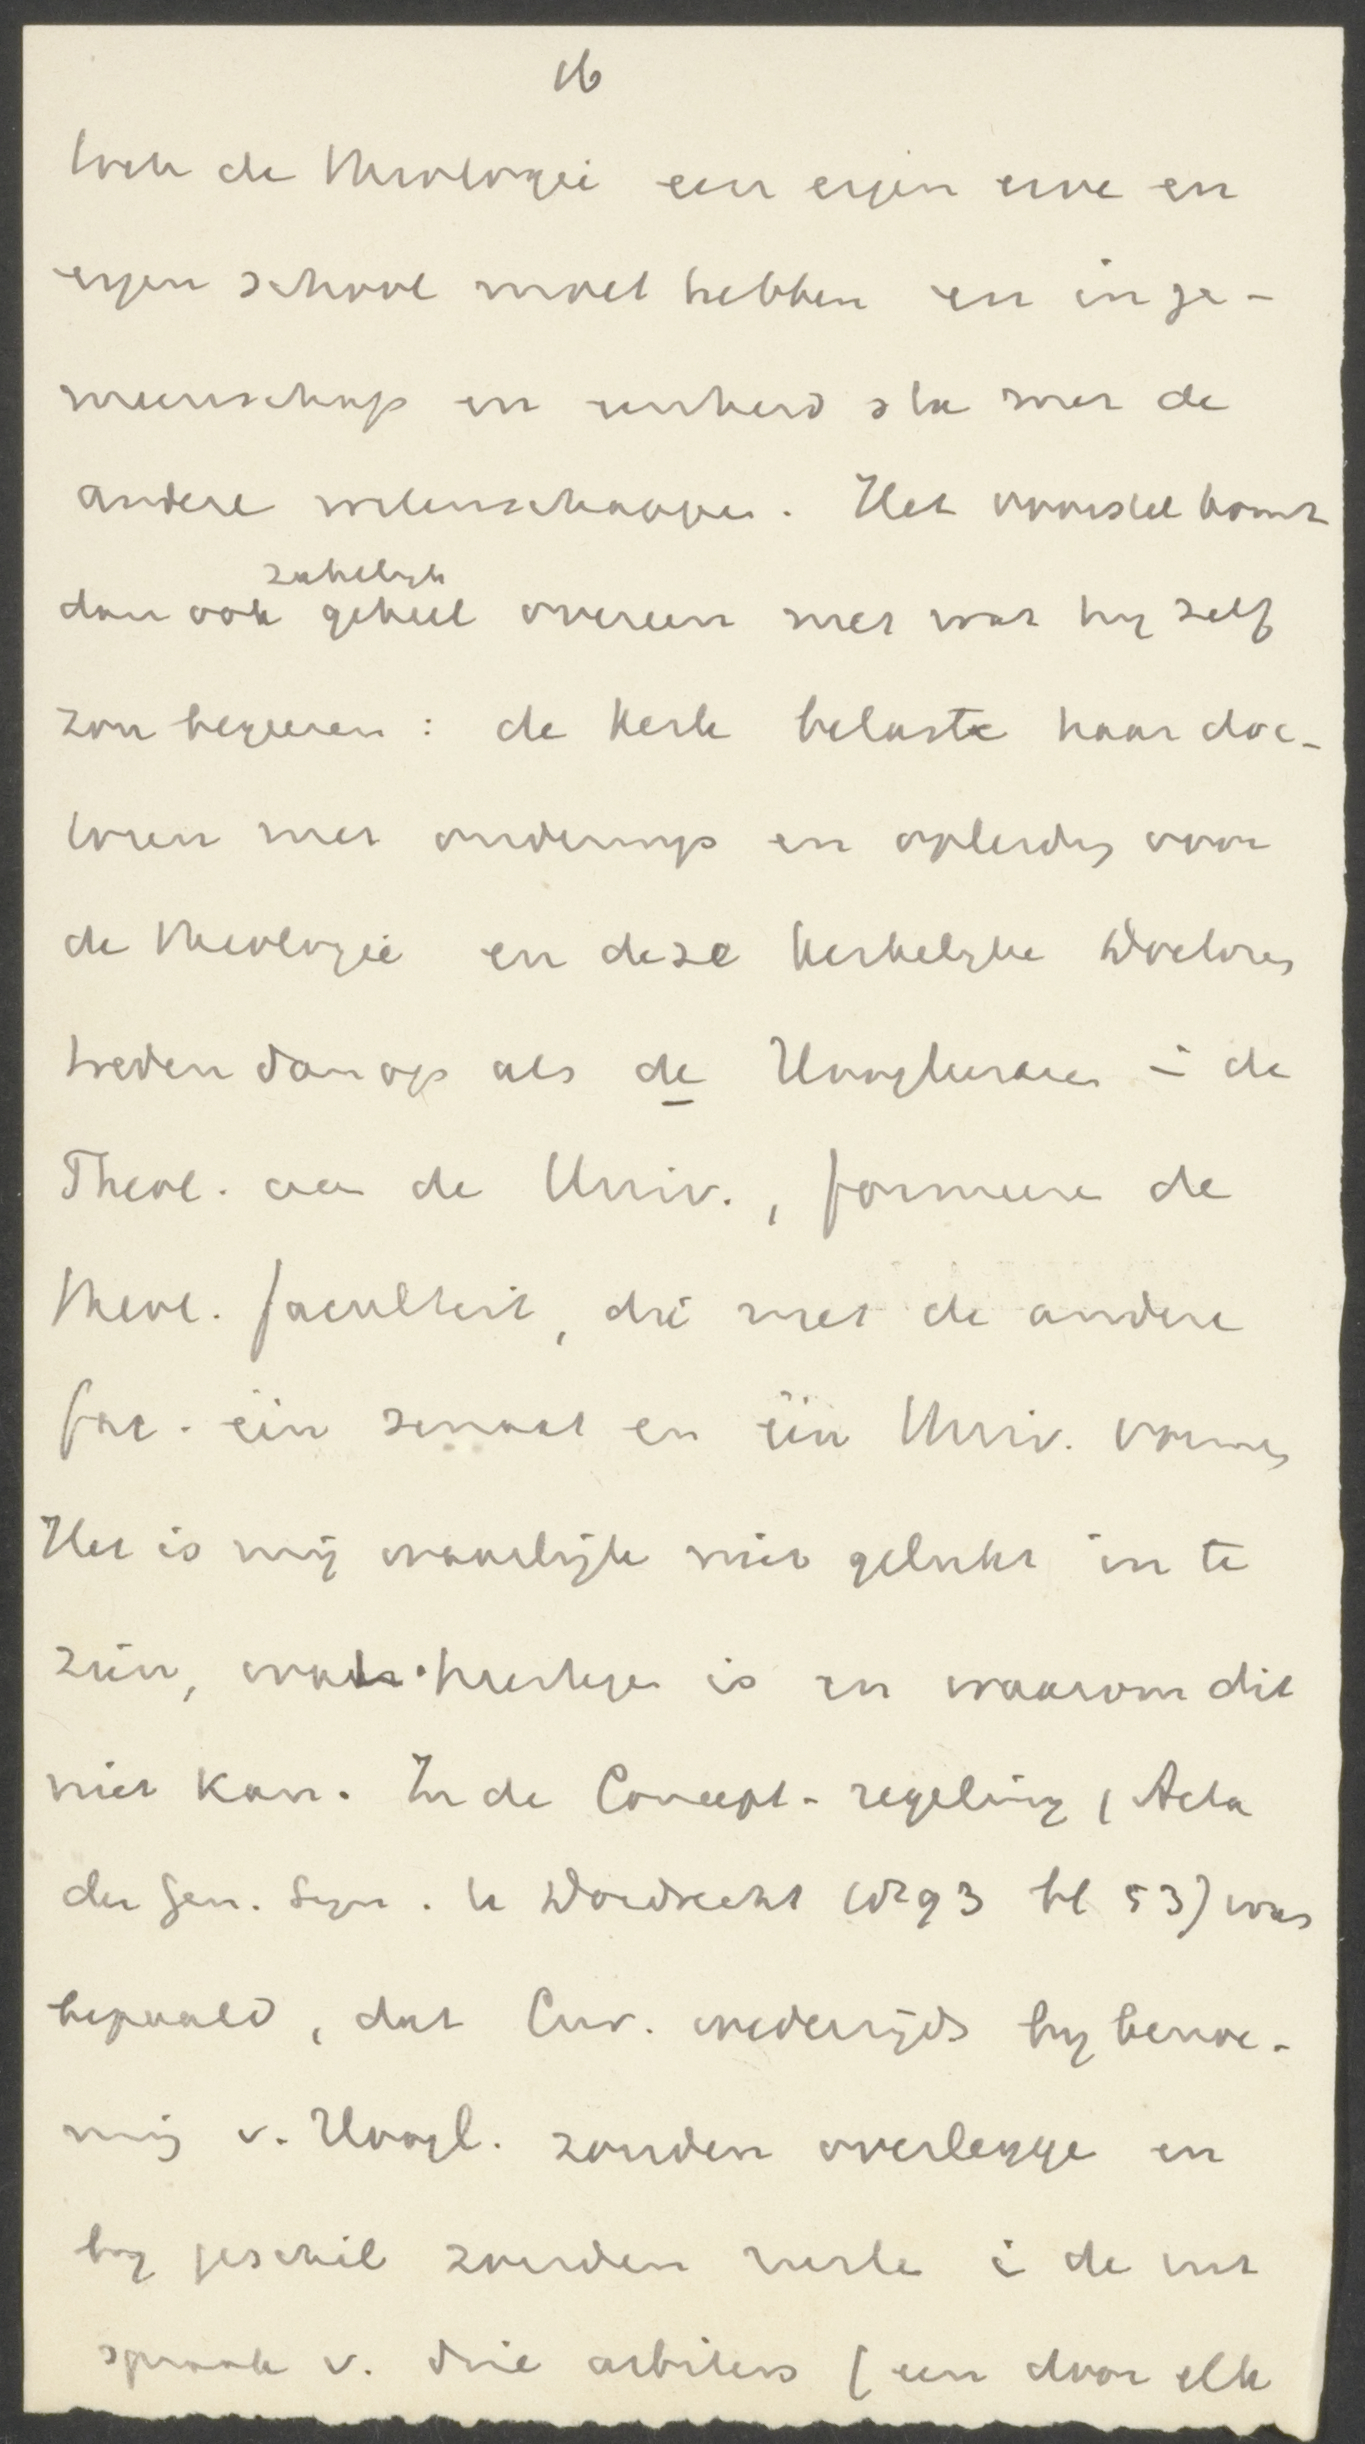 16
toch de theologie een eigen erve en
eigen school moet hebben en in ge-
meenschap en eenheid sta met de
andere wetenschappen. Het voorstel komt
zakelijk
dan ook geheel overeen met wat hij zelf
zou begeeren: de Kerk belaste haar doc-
toren met onderwijs en opleiding voor
de theologie en deze Kerkelijke Doctores
treden dan op als de Hoogleeraren in de
Theol. aan de Univ., formeeren de
theol. faculteit, die met de andere
fac. één senaat en één Univ. vormen
Het is mij waarlijk niet gelukt in te
zien, wat hiertegen is en waarom dit
niet kan. In de Concept-regeling (Acta
der Gen. Syn. te Dordrecht 1893 bl 53) was
bepaald, dat Cur. wederzijds bij benoe-
ming v. Hoogl. zouden overleggen en
bij geschil zouden in de uit
spraak v. drie arbiters (een door elk